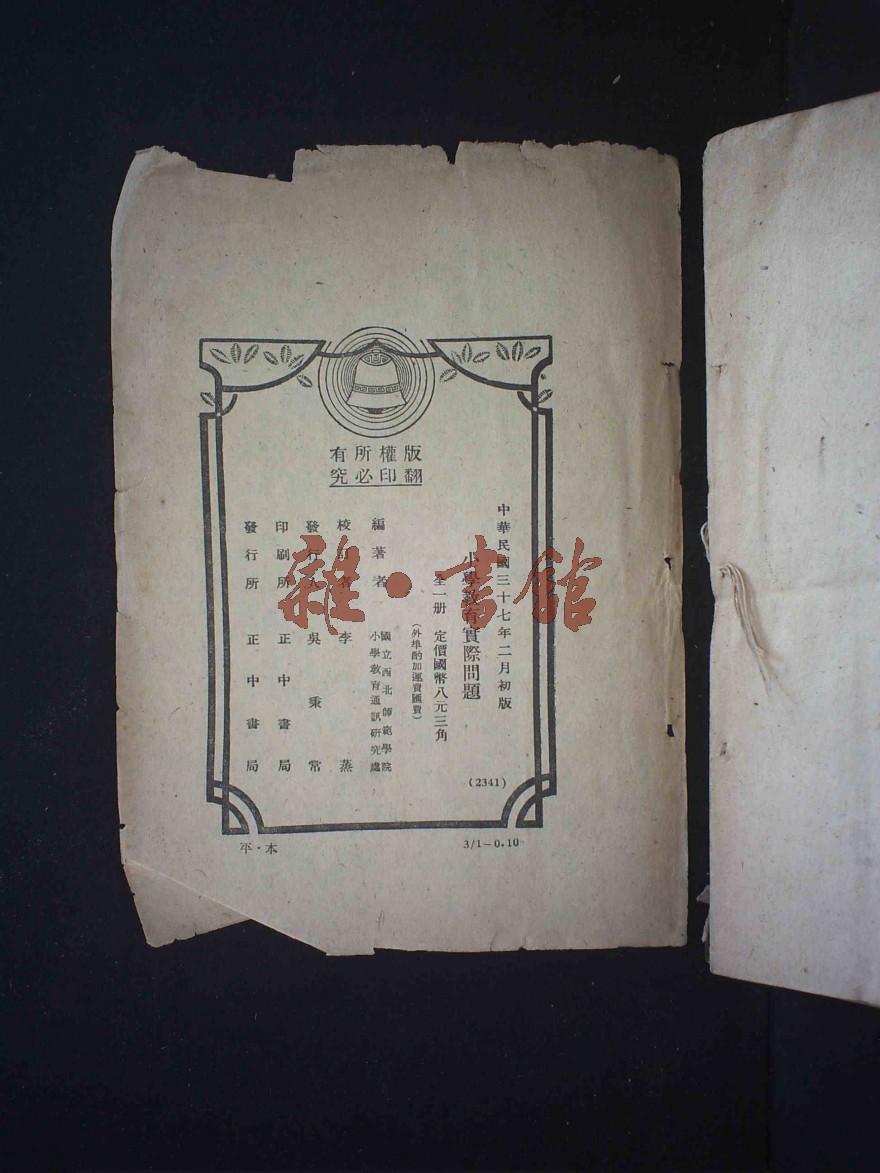 版權所有
翻印必究
中華民國三十七年二月初版
小學教育實際問題
全一册 定價國幣八元三角
（外埠酌加運費匯費）
編著者 國立西北師範學院
小學教育通訊研究處
校訂者 李蒸
發行人 吳秉常
印刷所 正中書局
發行所 正中書局
(2341)
平·本
3/1-0.10
雜·書館